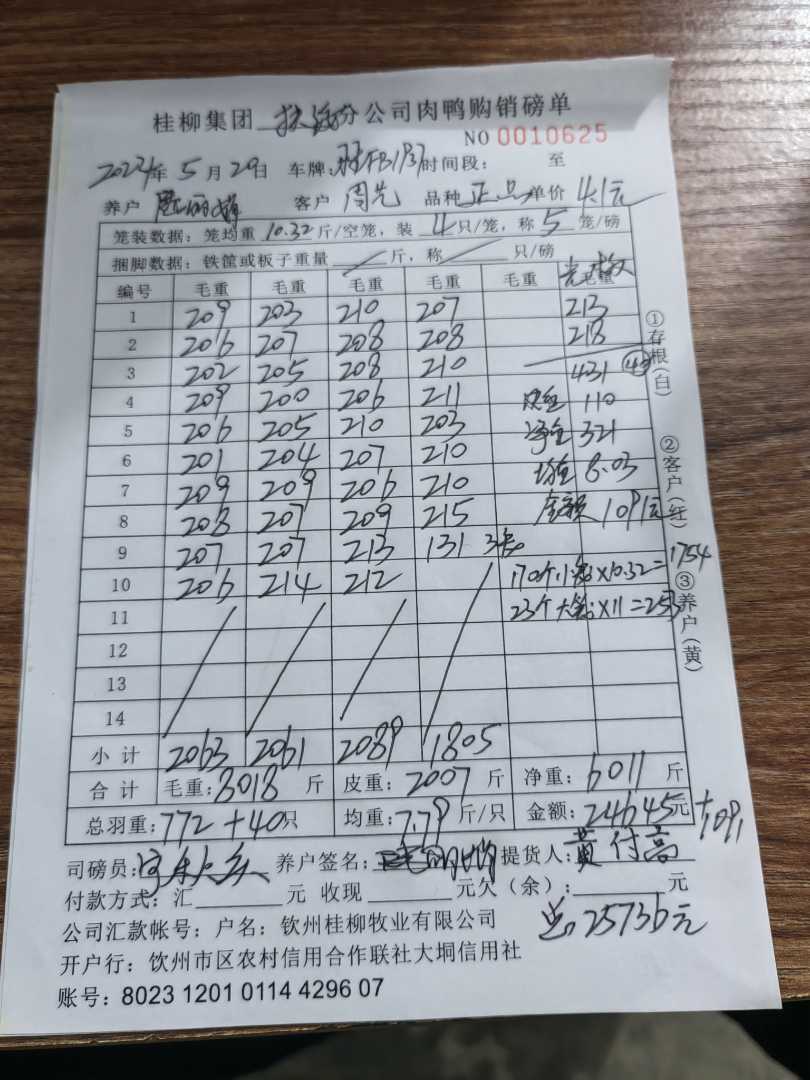 桂柳集团 分公司肉鸭购销磅单
NO 0010625
年 5 月 29日 车牌: 时间段: 至
养户 客户 周先 品种 正品 单价 4.1元
笼装数据: 笼均重 10.32 斤/空笼, 装 4 只/笼, 称 5 笼/磅
捆脚数据: 铁筐或板子重量 斤, 称 只/磅
编号 毛重 毛重 毛重 毛重 毛重 毛重
1 209 203 210 207 213
2 206 207 208 208 218
3 202 205 208 210 431
4 209 200 206 211 110
5 206 205 210 203 净重 321
6 201 204 207 210 均重 8.03
7 209 209 206 210 金额 1091元
8 208 207 209 215
9 207 207 213 131 3笼
10 206 214 212 170个小笼×10.32=1754
11 23个大笼×11=253
12
13
14
小计 2063 2061 2089 1805
合计 毛重: 8018 斤 皮重: 2007 斤 净重: 6011 斤
总羽重: 772+40只 均重: 7.79 斤/只 金额: 24645元 +1091
司磅员: 养户签名: 提货人: 黄付高
付款方式: 汇 元 收现 元欠(余): 元
总25736元
公司汇款帐号: 户名: 钦州桂柳牧业有限公司
开户行: 钦州市区农村信用合作联社大垌信用社
账号: 8023 1201 0114 4296 07
①存根(白)
②客户(红)
③养户(黄)